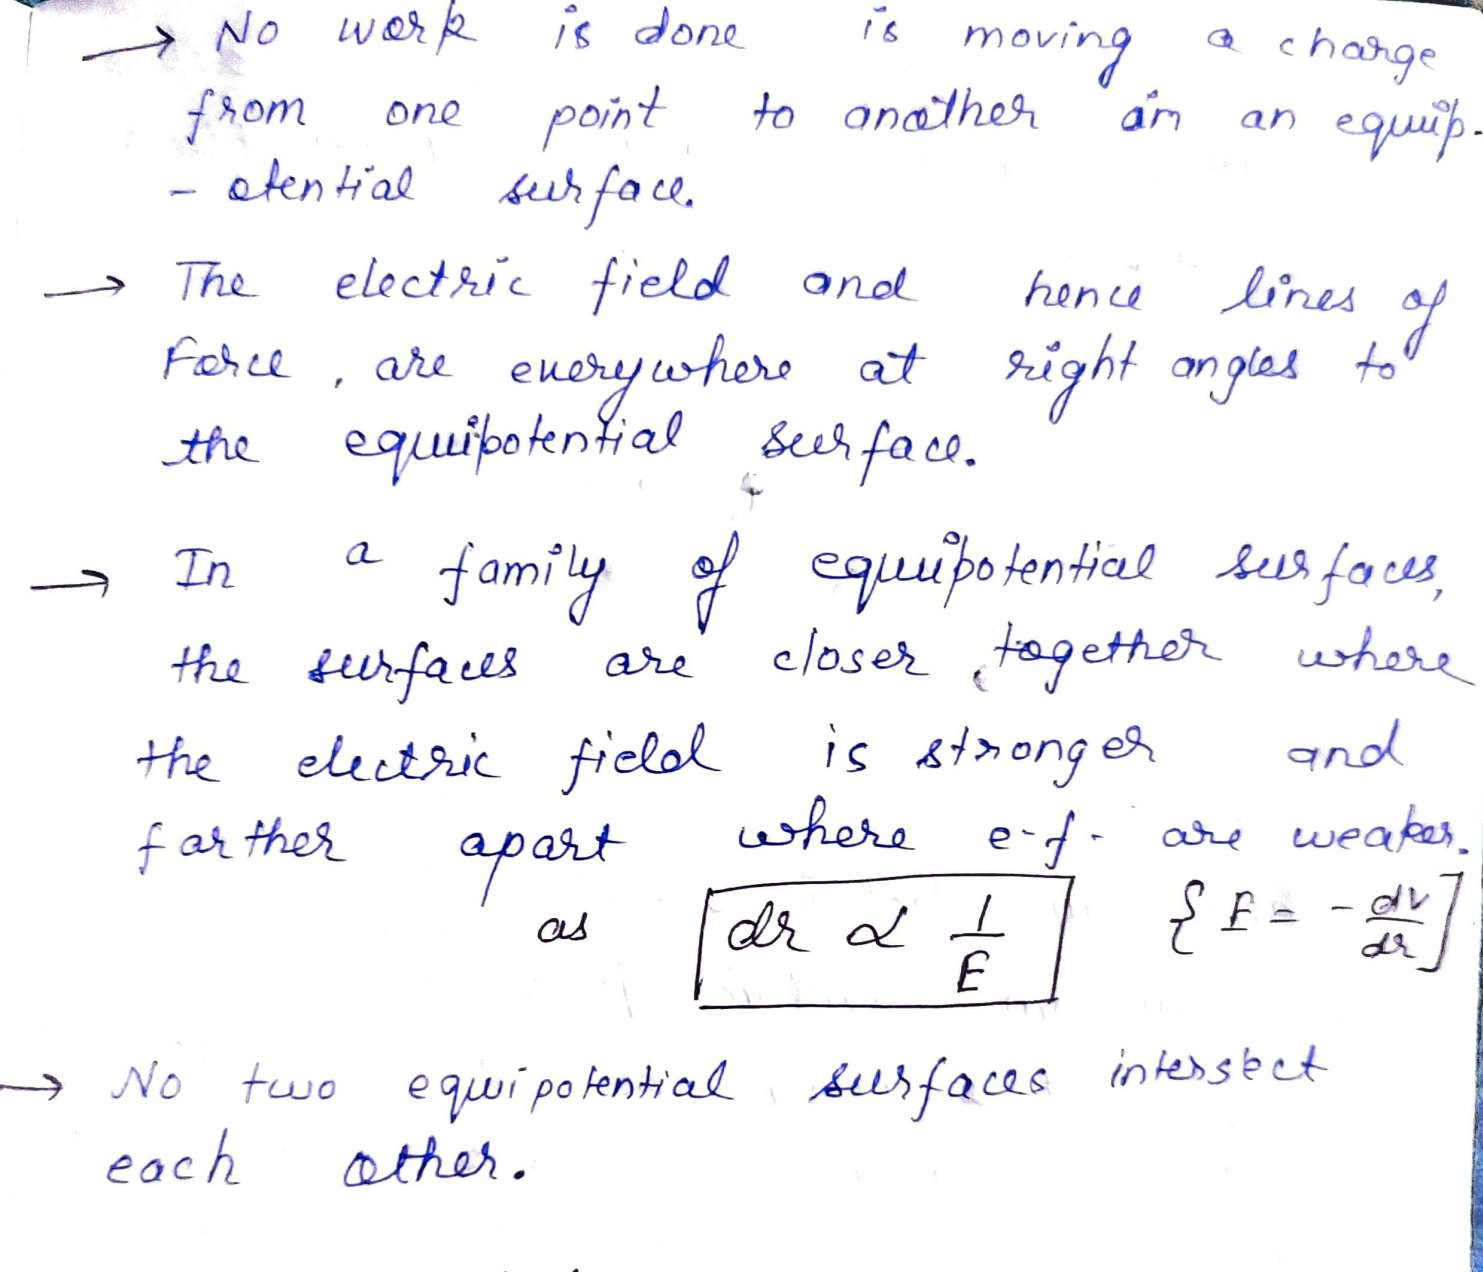 → No work is done is moving a charge
from one point to another on an equip-
- otential surface.
→ The electric field and hence lines of
Force, are everywhere at right angles to
the equipotential surface.
→ In a family of equipotential surfaces,
the surfaces are closer together where
the electric field is stronger and
farther apart where e-f- are weaker.
as dr ∝ 1/E { E = - dv/dr ]
→ No two equipotential surfaces intersect
each other.